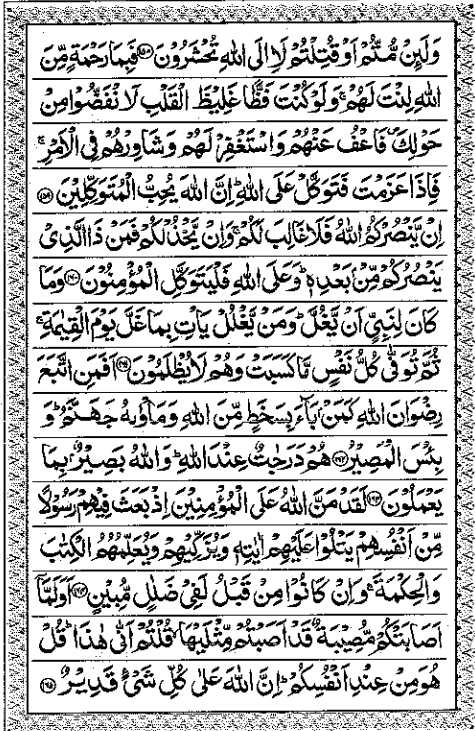 وَلَئِنْ مُّتُّمْ اَوْ قُتِلْتُمْ لَاۡ اِلَی اللّٰهِ تُحْشَرُوْنَ ﴿۱۵۸﴾ فَبِمَا رَحْمَةٍ مِّنَ
اللّٰهِ لِنْتَ لَهُمْ ۚ وَلَوْ كُنْتَ فَظًّا غَلِیْظَ الْقَلْبِ لَا نْفَضُّوْا مِنْ
حَوْلِكَ ۪ فَاعْفُ عَنْهُمْ وَاسْتَغْفِرْ لَهُمْ وَشَاوِرْهُمْ فِی الْاَمْرِ ۚ
فَاِذَا عَزَمْتَ فَتَوَكَّلْ عَلَی اللّٰهِ ؕ اِنَّ اللّٰهَ یُحِبُّ الْمُتَوَكِّلِیْنَ ﴿۱۵۹﴾
اِنْ یَّنْصُرْكُمُ اللّٰهُ فَلَا غَالِبَ لَكُمْ ۚ وَاِنْ یَّخْذُلْكُمْ فَمَنْ ذَا الَّذِیْ
یَنْصُرُكُمْ مِّنْۢ بَعْدِهٖ ؕ وَعَلَی اللّٰهِ فَلْیَتَوَكَّلِ الْمُؤْمِنُوْنَ ﴿۱۶۰﴾ وَمَا
كَانَ لِنَبِیٍّ اَنْ یَّغُلَّ ؕ وَمَنْ یَّغْلُلْ یَاْتِ بِمَا غَلَّ یَوْمَ الْقِیٰمَةِ ۚ
ثُمَّ تُوَفّٰی كُلُّ نَفْسٍ مَّا كَسَبَتْ وَهُمْ لَا یُظْلَمُوْنَ ﴿۱۶۱﴾ اَفَمَنِ اتَّبَعَ
رِضْوَانَ اللّٰهِ كَمَنْۢ بَآءَ بِسَخَطٍ مِّنَ اللّٰهِ وَمَاْوٰىهُ جَهَنَّمُ ؕ وَ
بِئْسَ الْمَصِیْرُ ﴿۱۶۲﴾ هُمْ دَرَجٰتٌ عِنْدَ اللّٰهِ ؕ وَاللّٰهُ بَصِیْرٌۢ بِمَا
یَعْمَلُوْنَ ﴿۱۶۳﴾ لَقَدْ مَنَّ اللّٰهُ عَلَی الْمُؤْمِنِیْنَ اِذْ بَعَثَ فِیْهِمْ رَسُوْلًا
مِّنْ اَنْفُسِهِمْ یَتْلُوْا عَلَیْهِمْ اٰیٰتِهٖ وَیُزَكِّیْهِمْ وَیُعَلِّمُهُمُ الْكِتٰبَ
وَالْحِكْمَةَ ۚ وَاِنْ كَانُوْا مِنْ قَبْلُ لَفِیْ ضَلٰلٍ مُّبِیْنٍ ﴿۱۶۴﴾ اَوَلَمَّاۤ
اَصَابَتْكُمْ مُّصِیْبَةٌ قَدْ اَصَبْتُمْ مِّثْلَیْهَا ۙ قُلْتُمْ اَنّٰی هٰذَا ؕ قُلْ
هُوَ مِنْ عِنْدِ اَنْفُسِكُمْ ؕ اِنَّ اللّٰهَ عَلٰی كُلِّ شَیْءٍ قَدِیْرٌ ﴿۱۶۵﴾